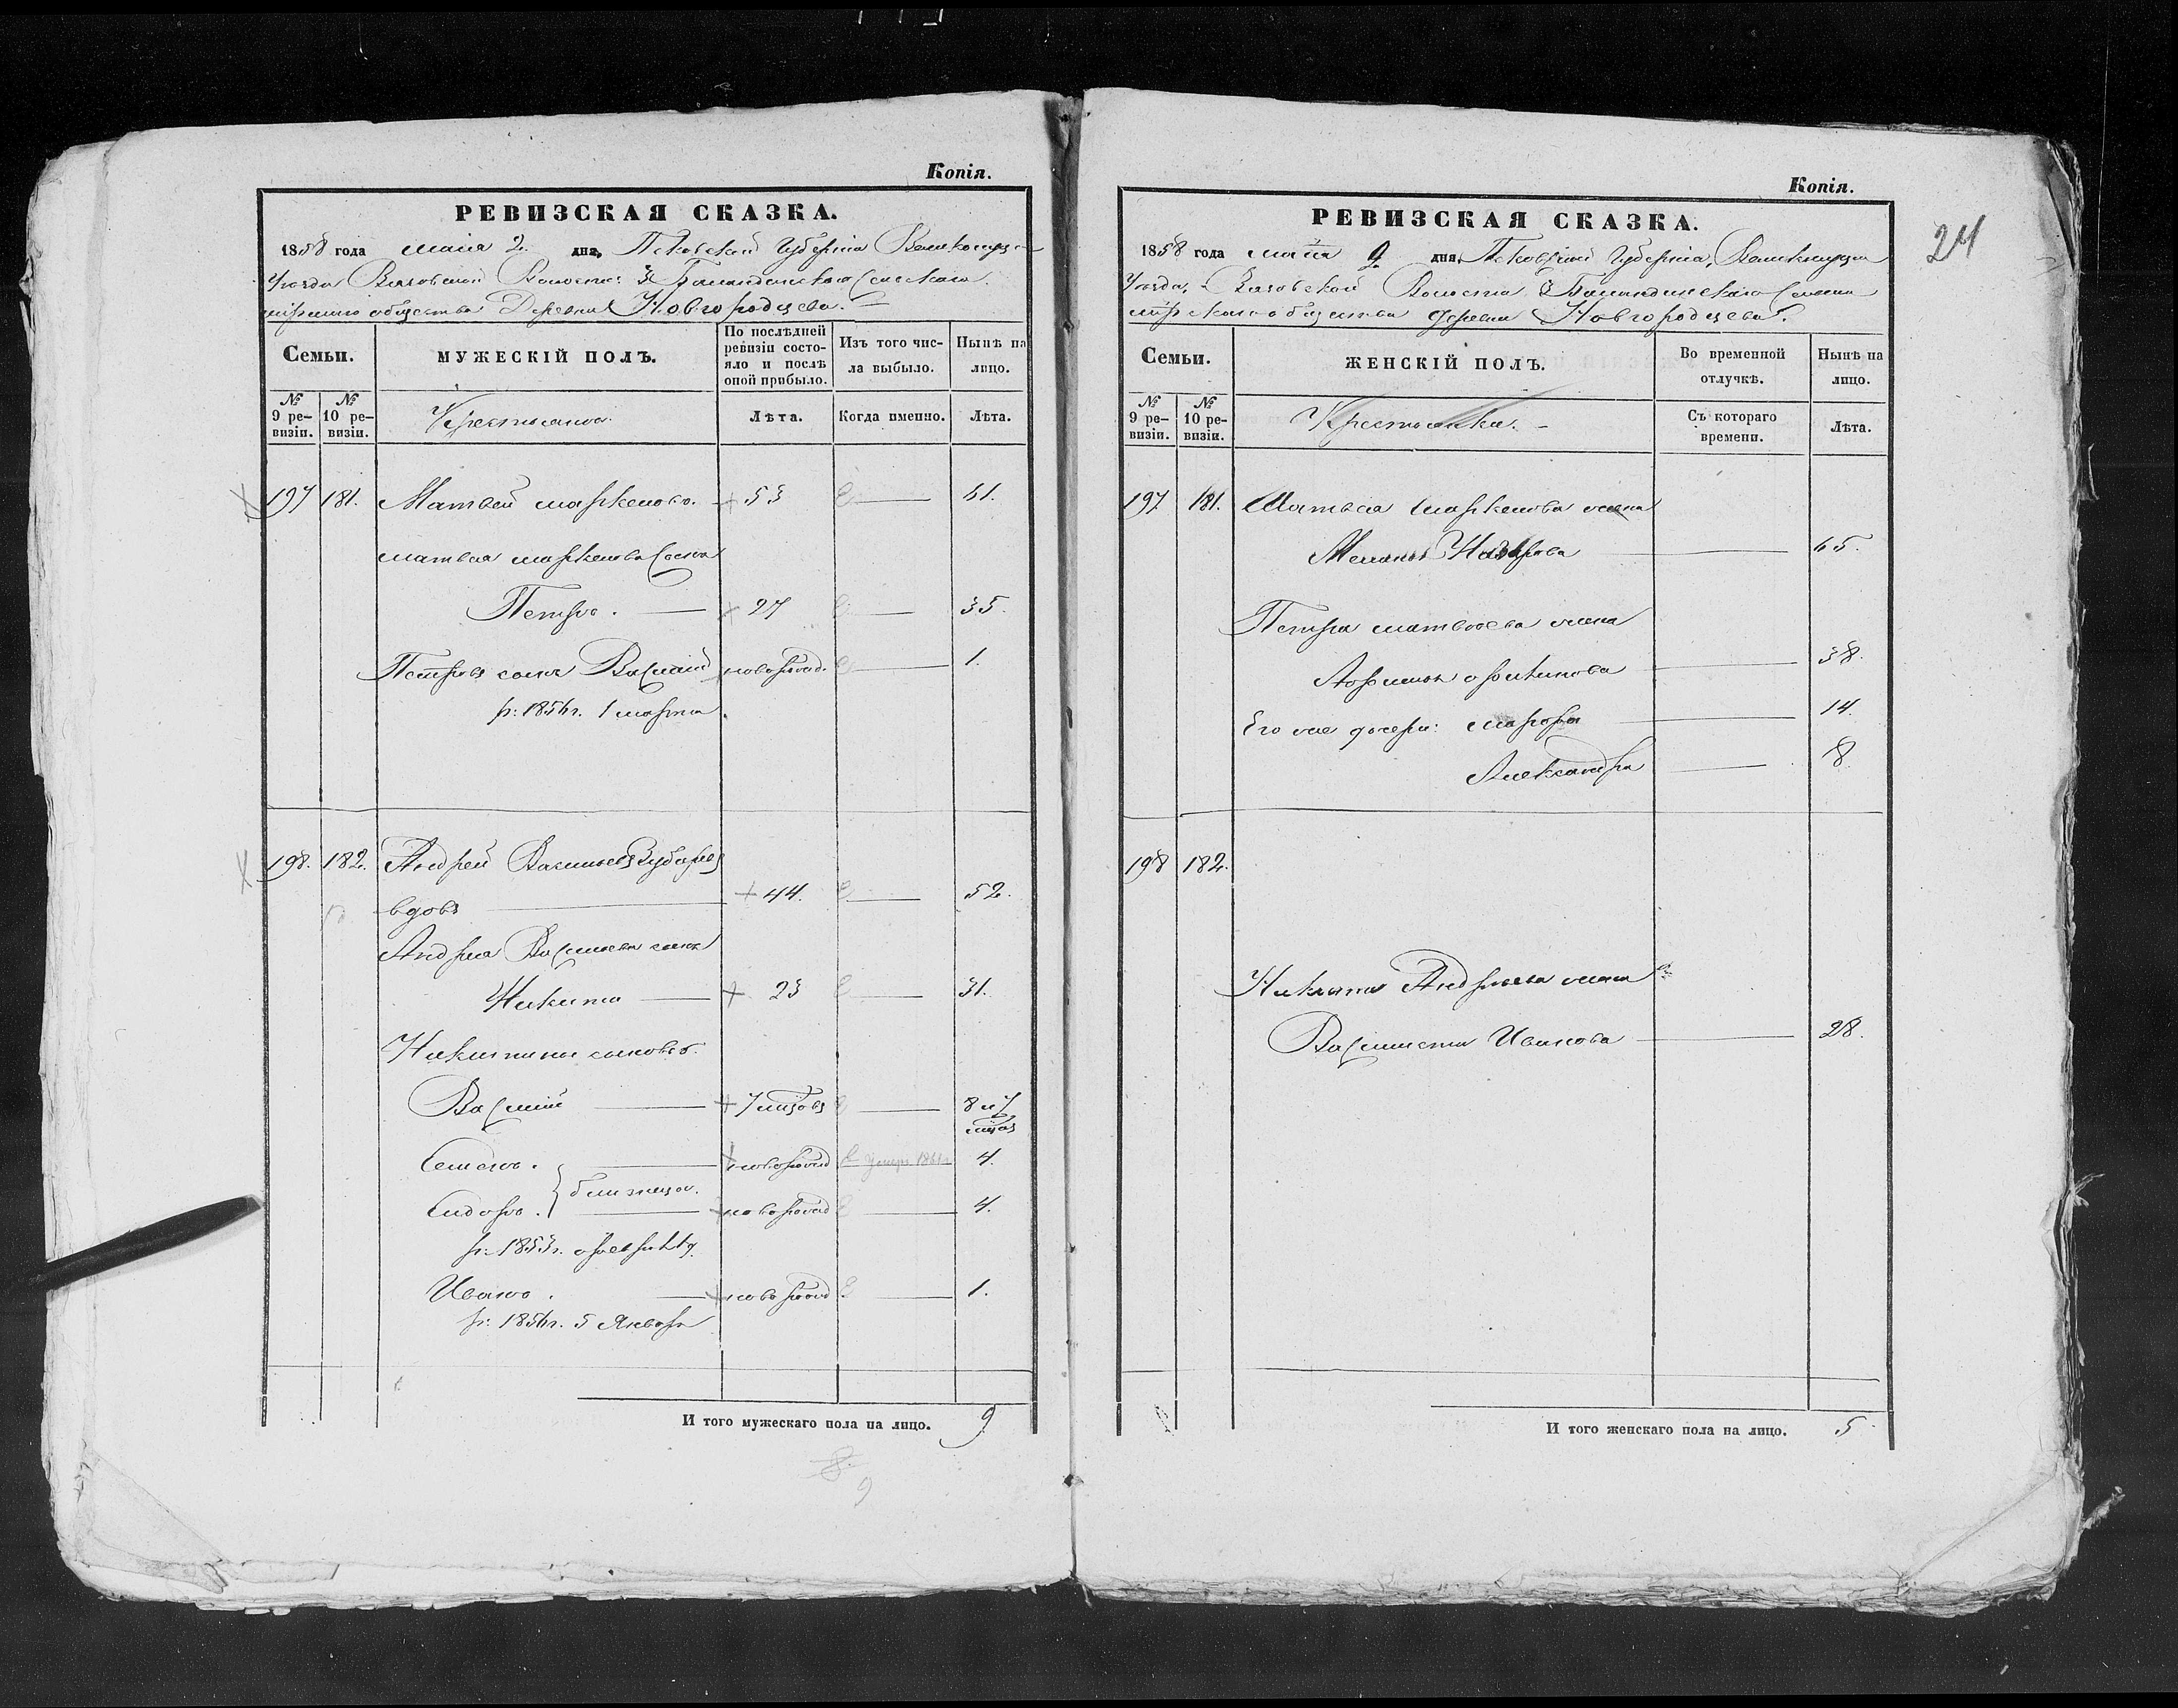 Копія.
РЕВИЗСКАЯ СКАЗКА.
1858 года маія 2 дня, Псковской Губерніи Великолуцк
Уезда Вязовской Волости: 3 Баландинскаго Сельскаго
общества Деревни Новгородцева.
Семьи.
МУЖЕСКІЙ ПОЛЪ.
По послѣдней ревизіи состояло и послѣ оной прибыло.
Изъ того числа выбыло.
Нынѣ на лицо.
№ 9 ревизіи.
№ 10 ревизіи.
Крестьяне.
Лѣта.
Когда именно.
Лѣта.
197 181. Матвей Маркеловъ. 53 61.
Матвея Маркелова сынъ
Петръ. 27 35.
Петровъ сынъ Василий новорожд. 1.
р: 1856 г. 1 марта
198. 182. Андрей Васильевъ Зубаревъ
вдовъ 44. 52.
Андрея Васильева сынъ
Никита 23 31.
Никитины сыновья.
Василій 7 мцовъ 8 и 7
мцов
Семенъ. новорожд умеръ 1861 4.
близнецы.
Сидоръ. новорожд 4.
р: 1853 г.
Иванъ. новорожд 1.
р: 1856 г. 5 Января
И того мужескаго пола на лицо. 9
8.
9
Копія.
24
РЕВИЗСКАЯ СКАЗКА.
1858 года маія 2 дня, Псковской Губерніи, Великлуцка
Уезда, Вязовской Волости 3 Баландинскаго
мірскаго общества деревни Новгородцева.
Семьи.
ЖЕНСКІЙ ПОЛЪ.
Во временной отлучкѣ.
Нынѣ на лицо.
№ 9 ревизіи.
№ 10 ревизіи.
Крестьянки.
Съ котораго времени.
Лѣта.
197. 181. Матвея Маркелова жена
Меланья 65.
Петра Матвеева жена
38.
Его же дочери: Марфа 14.
Александра 8.
198 182.
Никиты Андреева жена
Василиста Иванова 28.
И того женскаго пола на лицо. 5